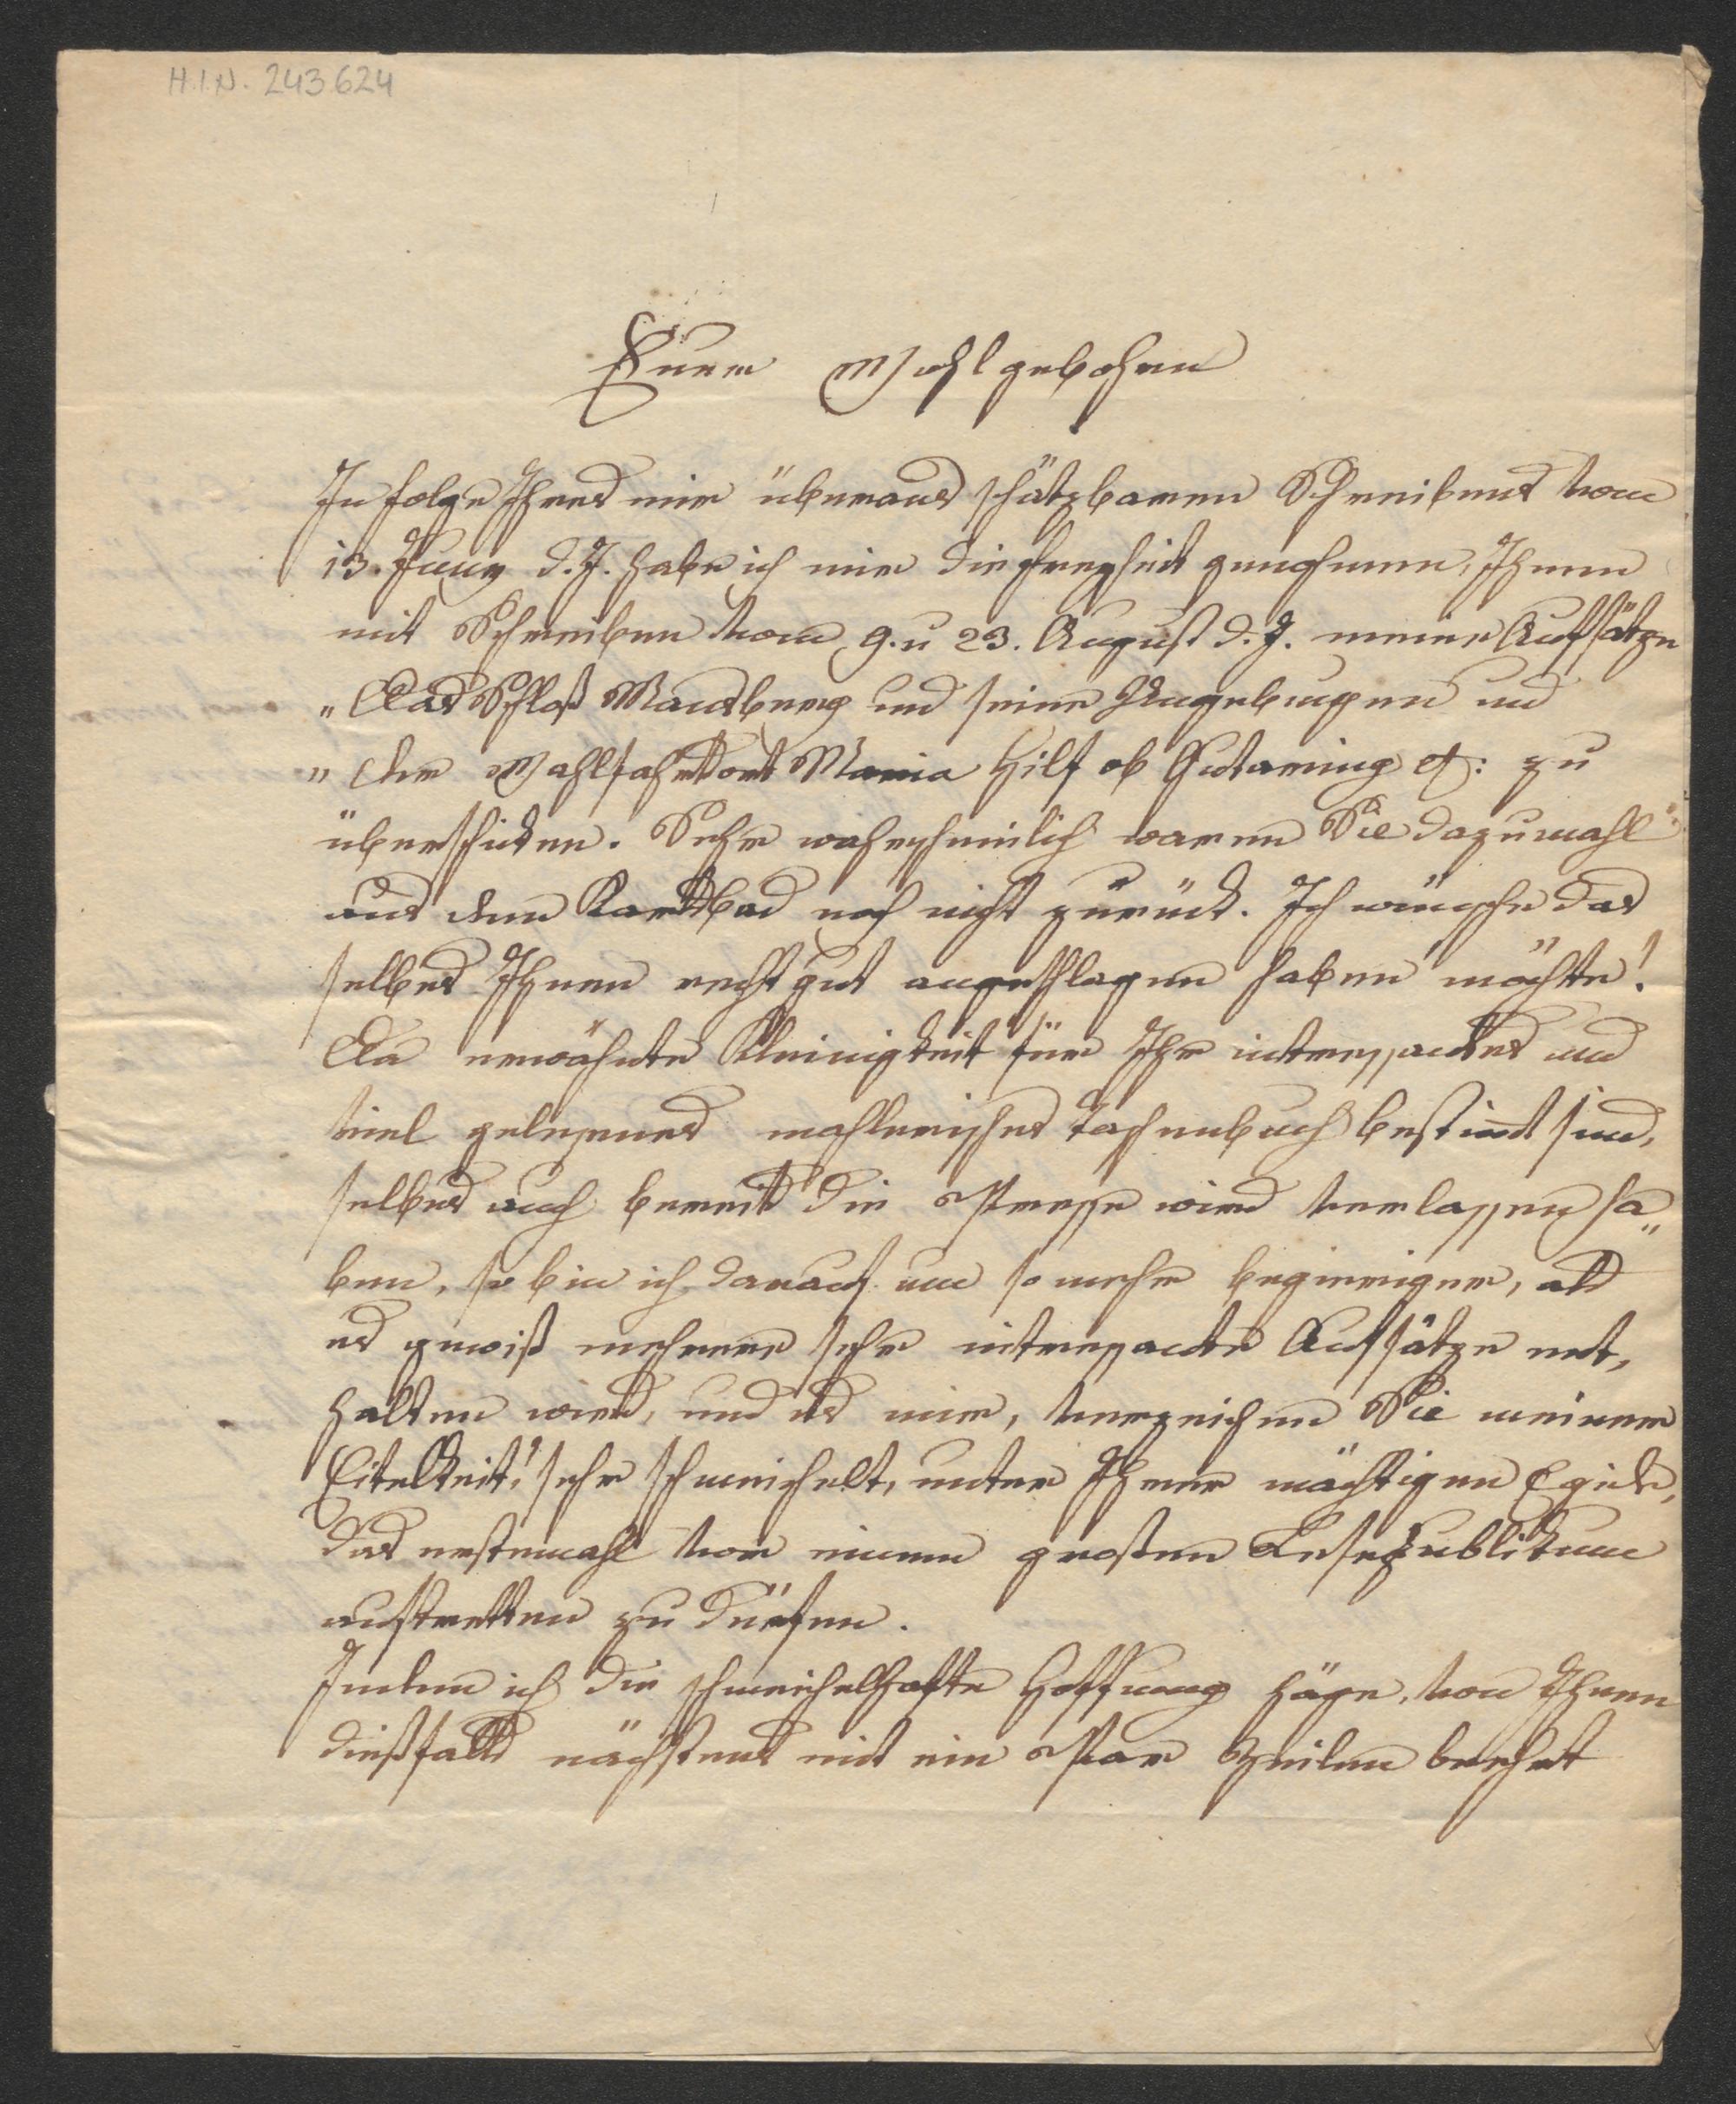 H.I.N. 243.624
Euer Wohlgebohren
In folge Ihres mir überaus schätzbaren Schreibens vom
13. Juny d. J. habe ich mir die freyheit genohmen, Ihnen
mit Schreiben vom 9. u 23. August d. J. meine Aufsätze
„Das Schloß Mannsberg und seine Umgebungen und
„Der Wahlfahrtsort Maria Hilf ob Gutaring etc: zu
überschicken. Sehr wahrscheinlich waren Sie dazumahl
aus dem Karlsbad noch nicht zurück. Ich wünsche das
selbes Ihnen recht gut angeschlagen haben möchte!
Da erwähnte Kleinigkeit für Ihr interessantes und
viel gelesenes mahlerisches Taschenbuch bestimt sind,
selbes auch bereits die Presse wird verlassen ha„
ben, so bin ich darauf um so mehr begieriger, als
es gewiß mehrere sehr interessante Aufsätze ent,
halten wird, und es mir, verzeihen Sie meiner
Eitelkeit! sehr schmeichelt, unter Ihrer mächtigen Egide,
das erstemahl vor einem großen Lesepublikum
auftretten zu dürfen.
Indem ich die schmeichelhafte Hoffnung häge, von Ihnen
dießfalls nächstens mit ein Paar Zeilen beehrt